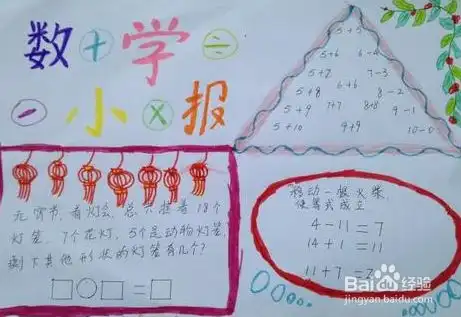 数 + 学 ÷
- 小 × 报
5+5
5+6 6-4
5+7 7-3
5+8 6+6 8-2
5+9 7+7 8+8 9-1
5+10 9+9 10-0
元宵节,有灯会,总共挂着18个
灯笼,7个花灯,5个是动物灯笼,
剩下其他形状的灯笼有几个?
□○□=□
移动一根火柴,
使等式成立
4-11=7
14+1=11
11+7=2
Baidu经验
jingyan.baidu.com